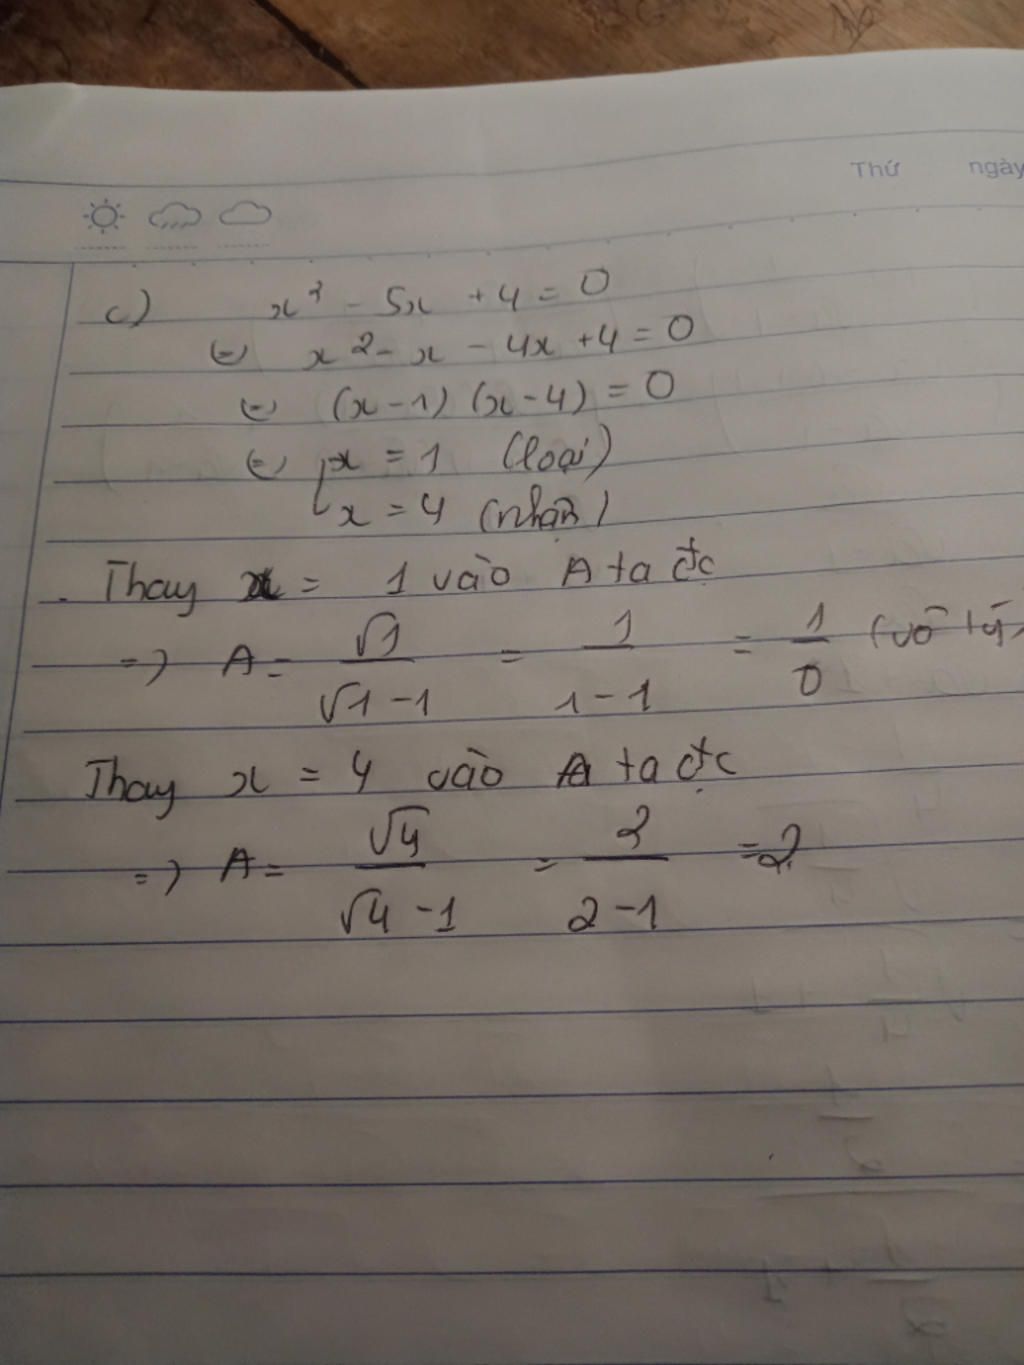 Thứ ngày
c) x² - 5x + 4 = 0
(=) x² - x - 4x + 4 = 0
(=) (x - 1) (x - 4) = 0
(=) [x = 1 (loại)
x = 4 (nhận)
Thay x = 1 vào A ta đc
=> A = √1/(√1 - 1) = 1/(1 - 1) = 1/0 (vô lý)
Thay x = 4 vào A ta đc
=> A = √4/(√4 - 1) = 2/(2 - 1) = 2.